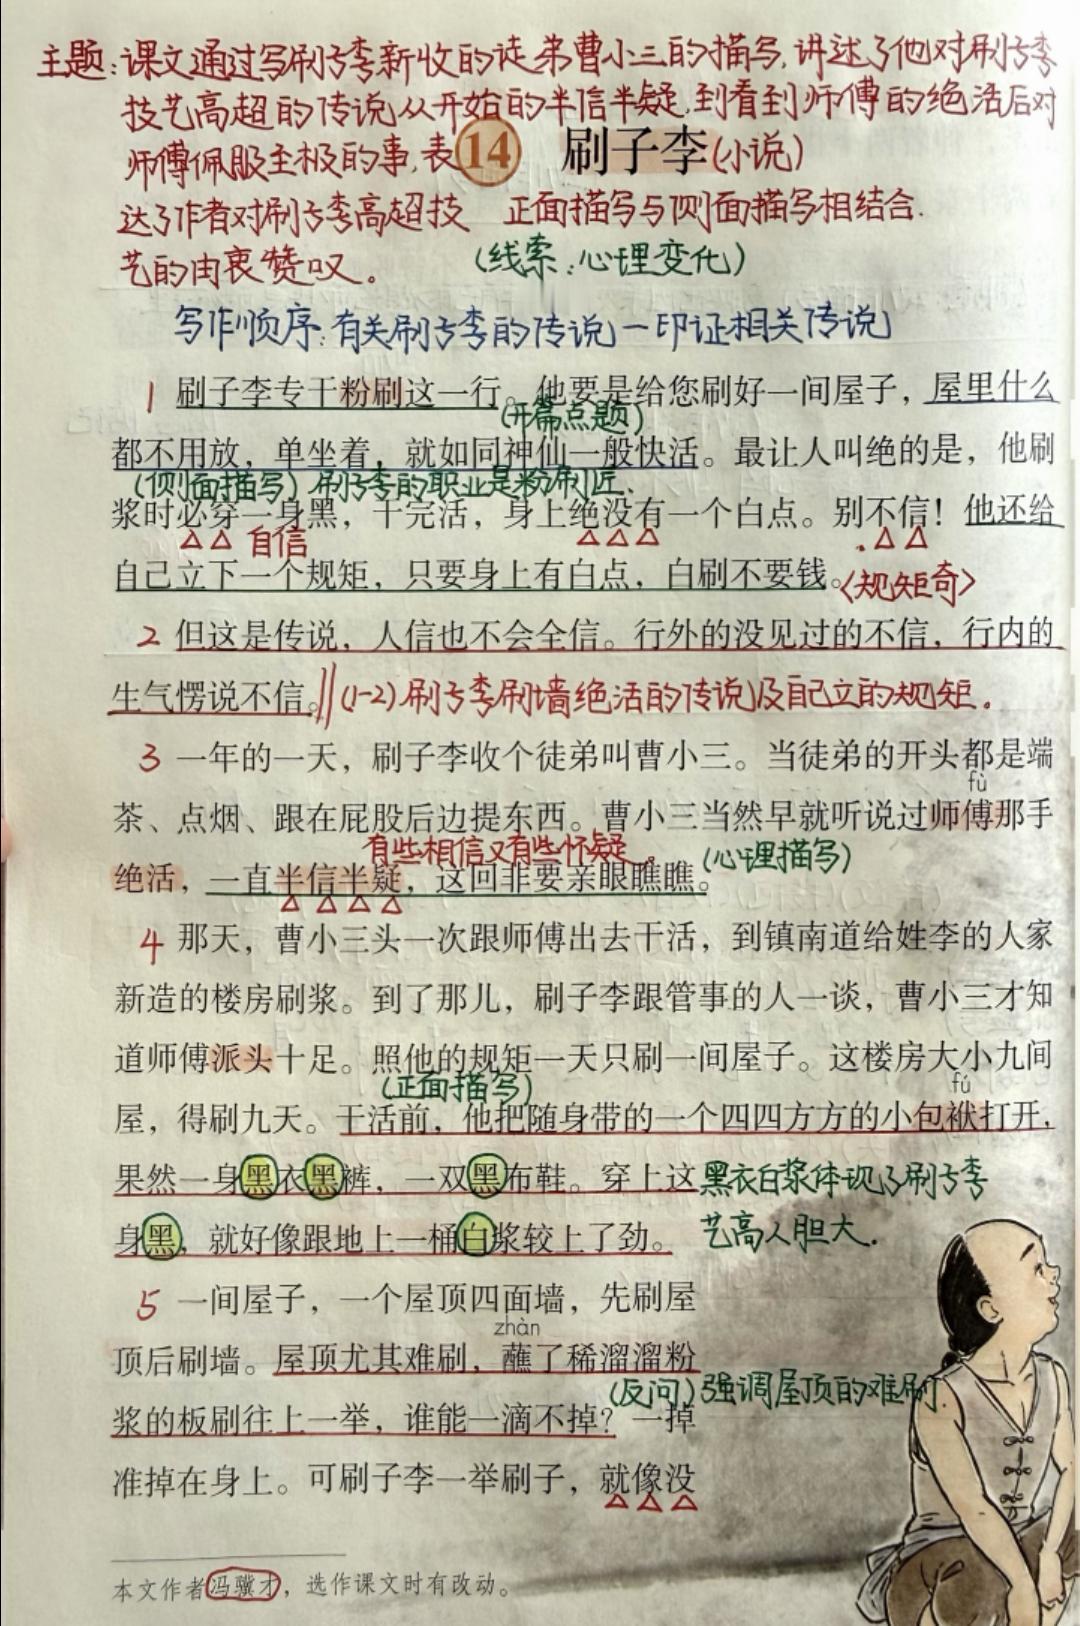 主题:课文通过写刷子李新收的徒弟曹小三的描写,讲述了他对刷子李
技艺高超的传说从开始的半信半疑,到看到师傅的绝活后对
师傅佩服至极的事,表
14 刷子李(小说)
达了作者对刷子李高超技
正面描写与侧面描写相结合.
艺的由衷赞叹。
(线索:心理变化)
写作顺序:有关刷子李的传说一印证相关传说
1 刷子李专干粉刷这一行。他要是给您刷好一间屋子,屋里什么
(开篇点题)
都不用放,单坐着,就如同神仙一般快活。最让人叫绝的是,他刷
(侧面描写)刷子李的职业是粉刷匠.
浆时必穿一身黑,干完活,身上绝没有一个白点。别不信!他还给
自信
自己立下一个规矩,只要身上有白点,白刷不要钱。
〈规矩奇〉
2 但这是传说,人信也不会全信。行外的没见过的不信,行内的
生气愣说不信。∥(1-2)刷子李刷墙绝活的传说及自己立的规矩。
3 一年的一天,刷子李收个徒弟叫曹小三。当徒弟的开头都是端
fù
茶、点烟、跟在屁股后边提东西。曹小三当然早就听说过师傅那手
有些相信又有些怀疑。(心理描写)
绝活,一直半信半疑,这回非要亲眼瞧瞧。
4 那天,曹小三头一次跟师傅出去干活,到镇南道给姓李的人家
新造的楼房刷浆。到了那儿,刷子李跟管事的人一谈,曹小三才知
道师傅派头十足。照他的规矩一天只刷一间屋子。这楼房大小九间
(正面描写)
fú
屋,得刷九天。干活前,他把随身带的一个四四方方的小包袱打开,
果然一身黑衣黑裤,一双黑布鞋。穿上这
黑衣白浆体现了刷子李
身黑,就好像跟地上一桶白浆较上了劲。
艺高人胆大.
5 一间屋子,一个屋顶四面墙,先刷屋
zhàn
顶后刷墙。屋顶尤其难刷,蘸了稀溜溜粉
(反问)强调屋顶的难刷.
浆的板刷往上一举,谁能一滴不掉?一掉
准掉在身上。可刷子李一举刷子,就像没
本文作者冯骥才,选作课文时有改动。